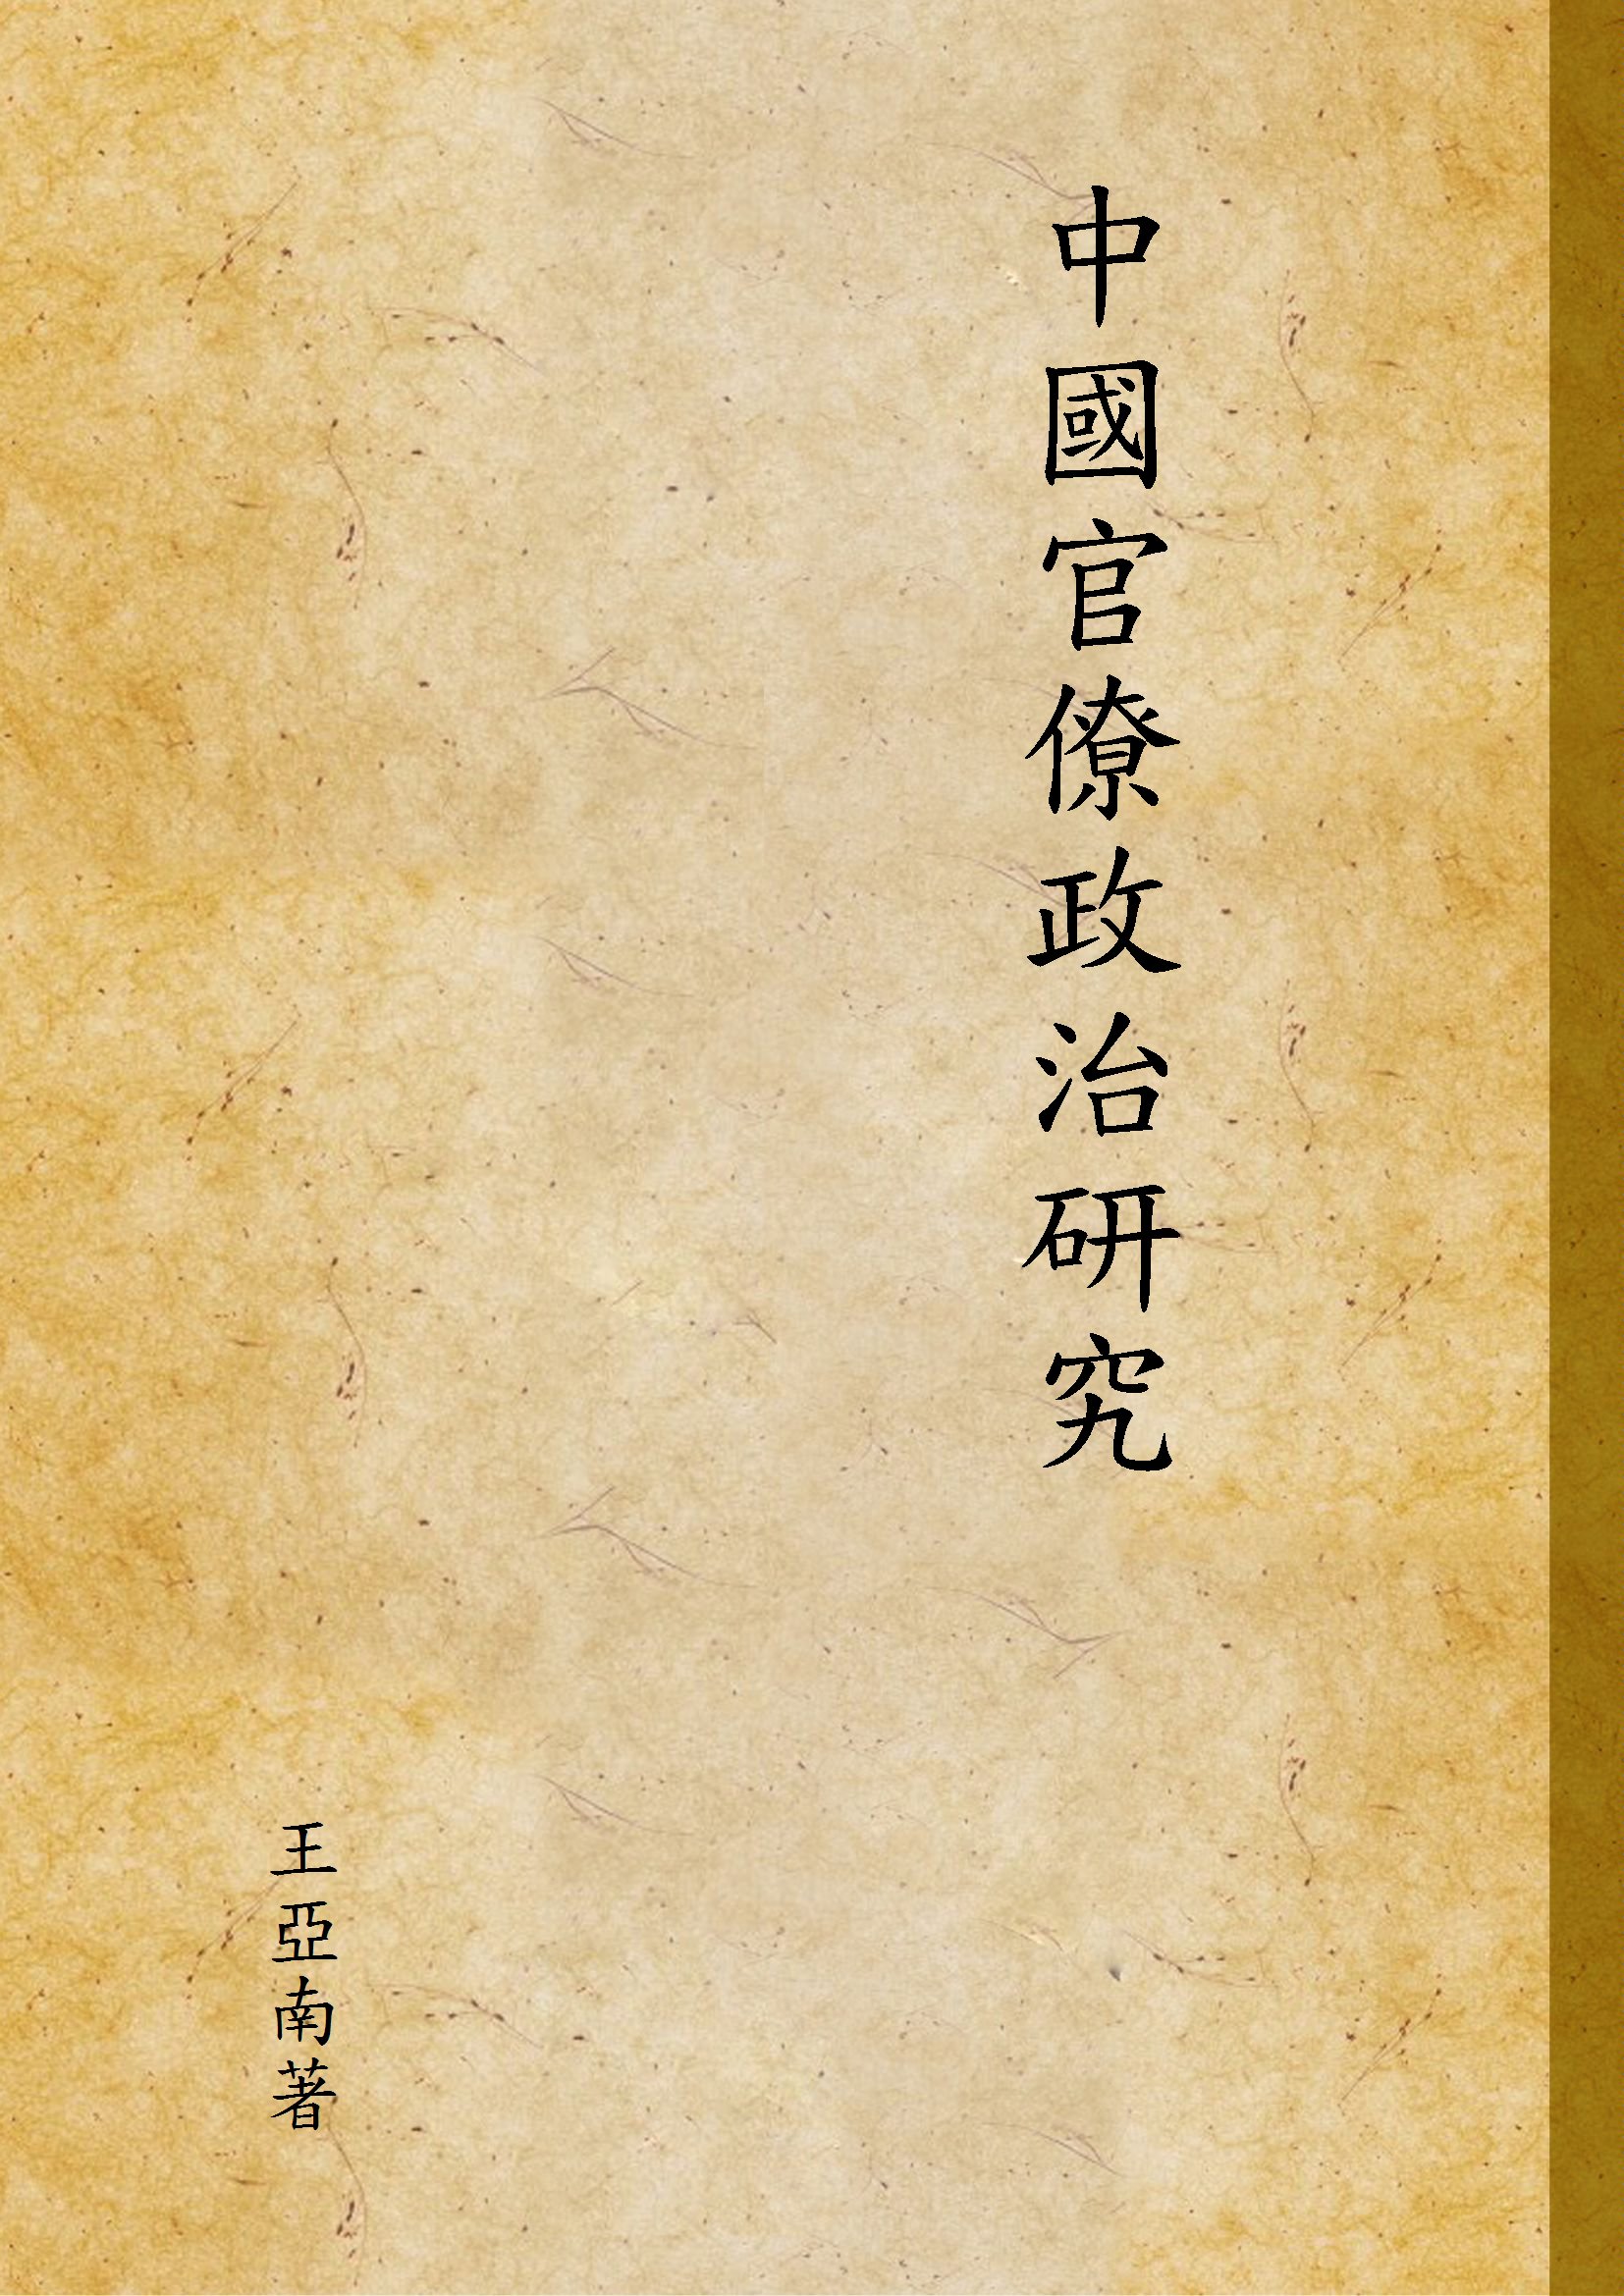 中國官僚政治研究
王亞南著